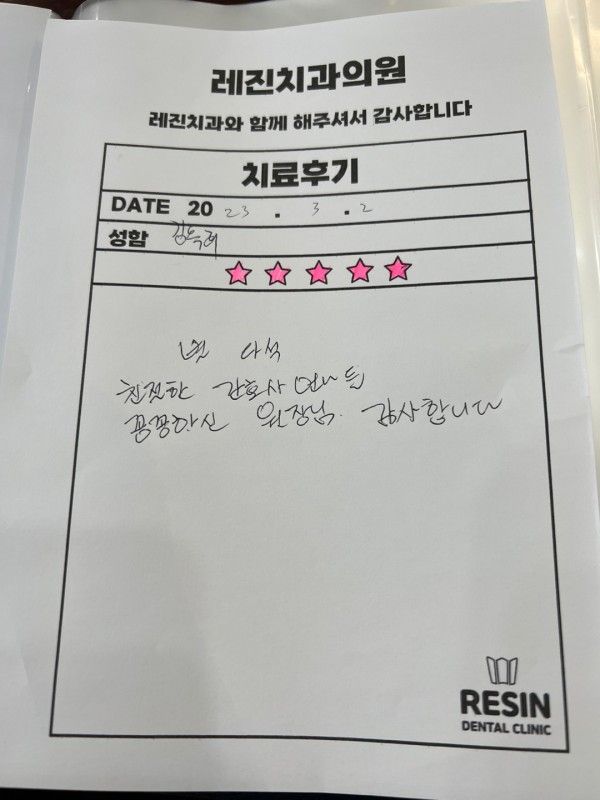 레진치과의원
레진치과와 함께 해주셔서 감사합니다
치료후기
DATE 20 23 . 3 . 2
성함
별 다섯
친절한 간호사 언니들
꼼꼼하신 원장님. 감사합니다
RESIN
DENTAL CLINIC